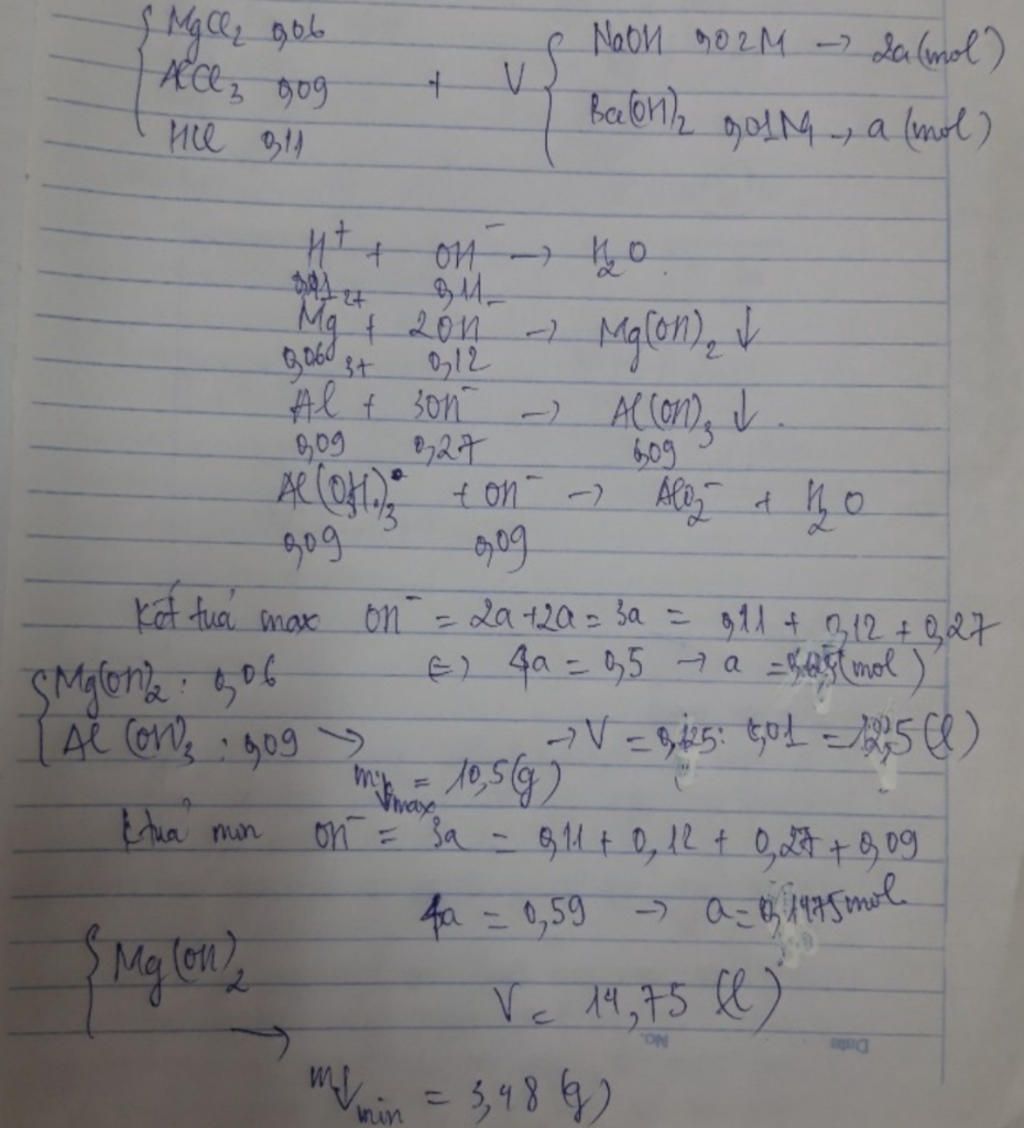 MgCl₂ 0,06
AlCl₃ 0,09 + V
HCl 0,11
NaOH 0,02M → 2a (mol)
Ba(OH)₂ 0,01M → a (mol)
H⁺ + OH⁻ → H₂O
0,11
Mg²⁺ + 2OH⁻ → Mg(OH)₂ ↓
0,06 0,12
Al³⁺ + 3OH⁻ → Al(OH)₃ ↓
0,09 0,27 0,09
Al(OH)₃ + OH⁻ → AlO₂⁻ + H₂O
0,09 0,09
Kết tuả max OH⁻ = 2a + 2a = 3a = 0,11 + 0,12 + 0,27
Mg(OH)₂ : 0,06 <=> 4a = 0,5 → a = (mol)
Al(OH)₃ : 0,09 → → V = 0,125 : 0,01 = 12,5 (l)
m↓max = 10,5 (g)
ktuả min OH⁻ = 3a = 0,11 + 0,12 + 0,27 + 0,09
4a = 0,59 → a = 0,1475 mol
Mg(OH)₂
V = 14,75 (l)
→
No. Date
m↓min = 3,48 (g)